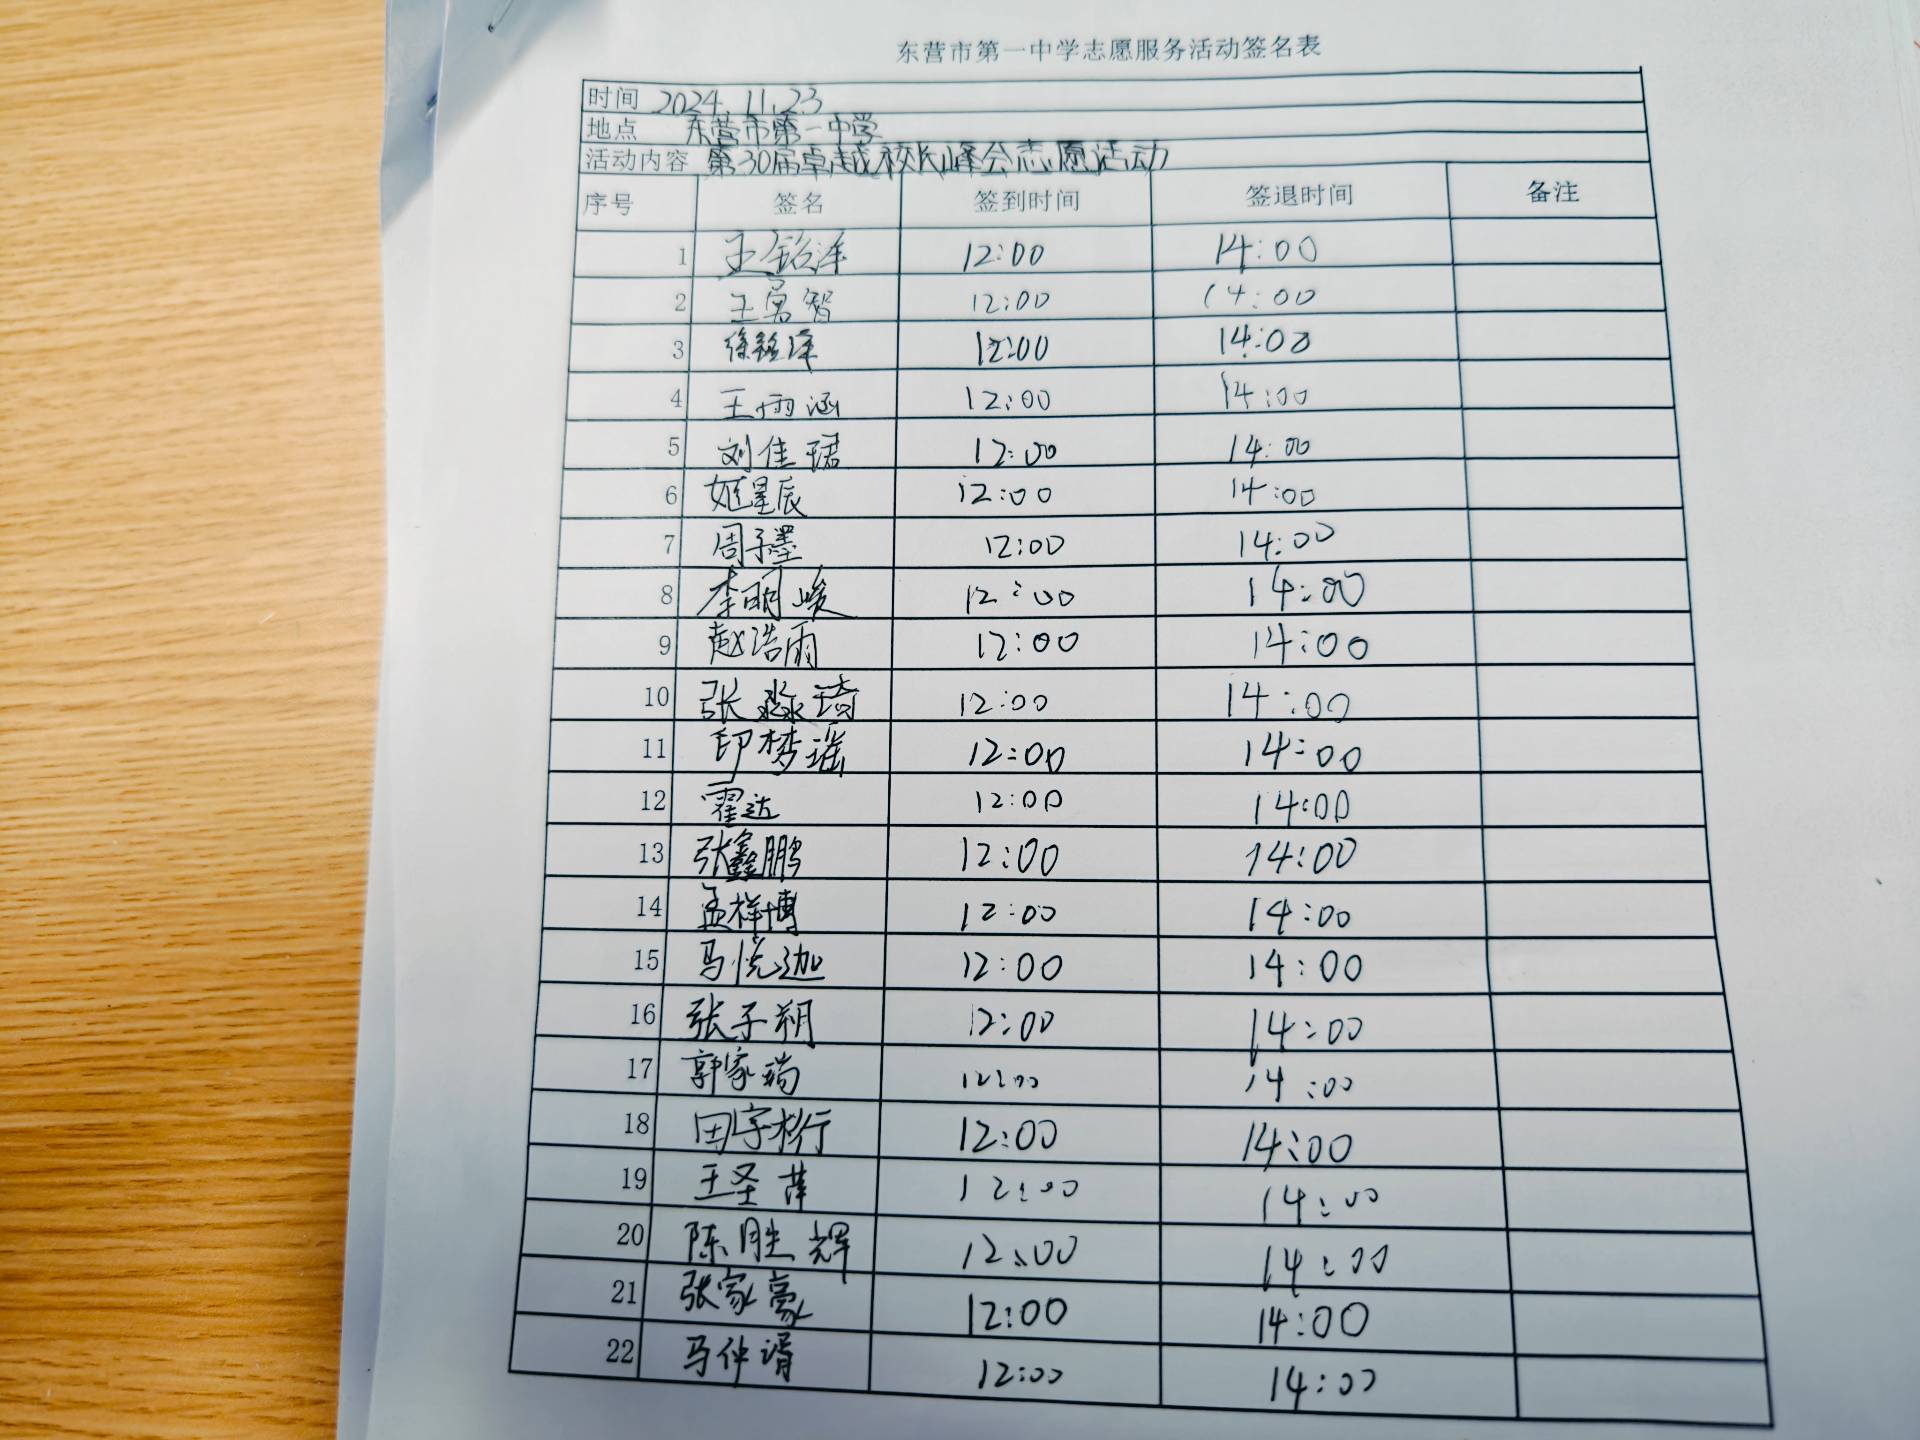 东营市第一中学志愿服务活动签名表
时间 2024.11.23
地点 东营市第一中学
活动内容 第30届卓越校长峰会志愿活动
序号 签名 签到时间 签退时间 备注
1 王铭泽 12:00 14:00
2 王勇智 12:00 14:00
3 徐铭泽 12:00 14:00
4 王雨涵 12:00 14:00
5 刘佳珺 12:00 14:00
6 姬星辰 12:00 14:00
7 周子墨 12:00 14:00
8 李明峻 12:00 14:00
9 赵浩雨 12:00 14:00
10 张淼琦 12:00 14:00
11 印梦瑶 12:00 14:00
12 霍达 12:00 14:00
13 张鑫鹏 12:00 14:00
14 孟祥博 12:00 14:00
15 马悦迦 12:00 14:00
16 张子朔 12:00 14:00
17 郭家瑞 12:00 14:00
18 田宇桁 12:00 14:00
19 王圣萍 12:00 14:00
20 陈胜辉 12:00 14:00
21 张家豪 12:00 14:00
22 马仲谞 12:00 14:00